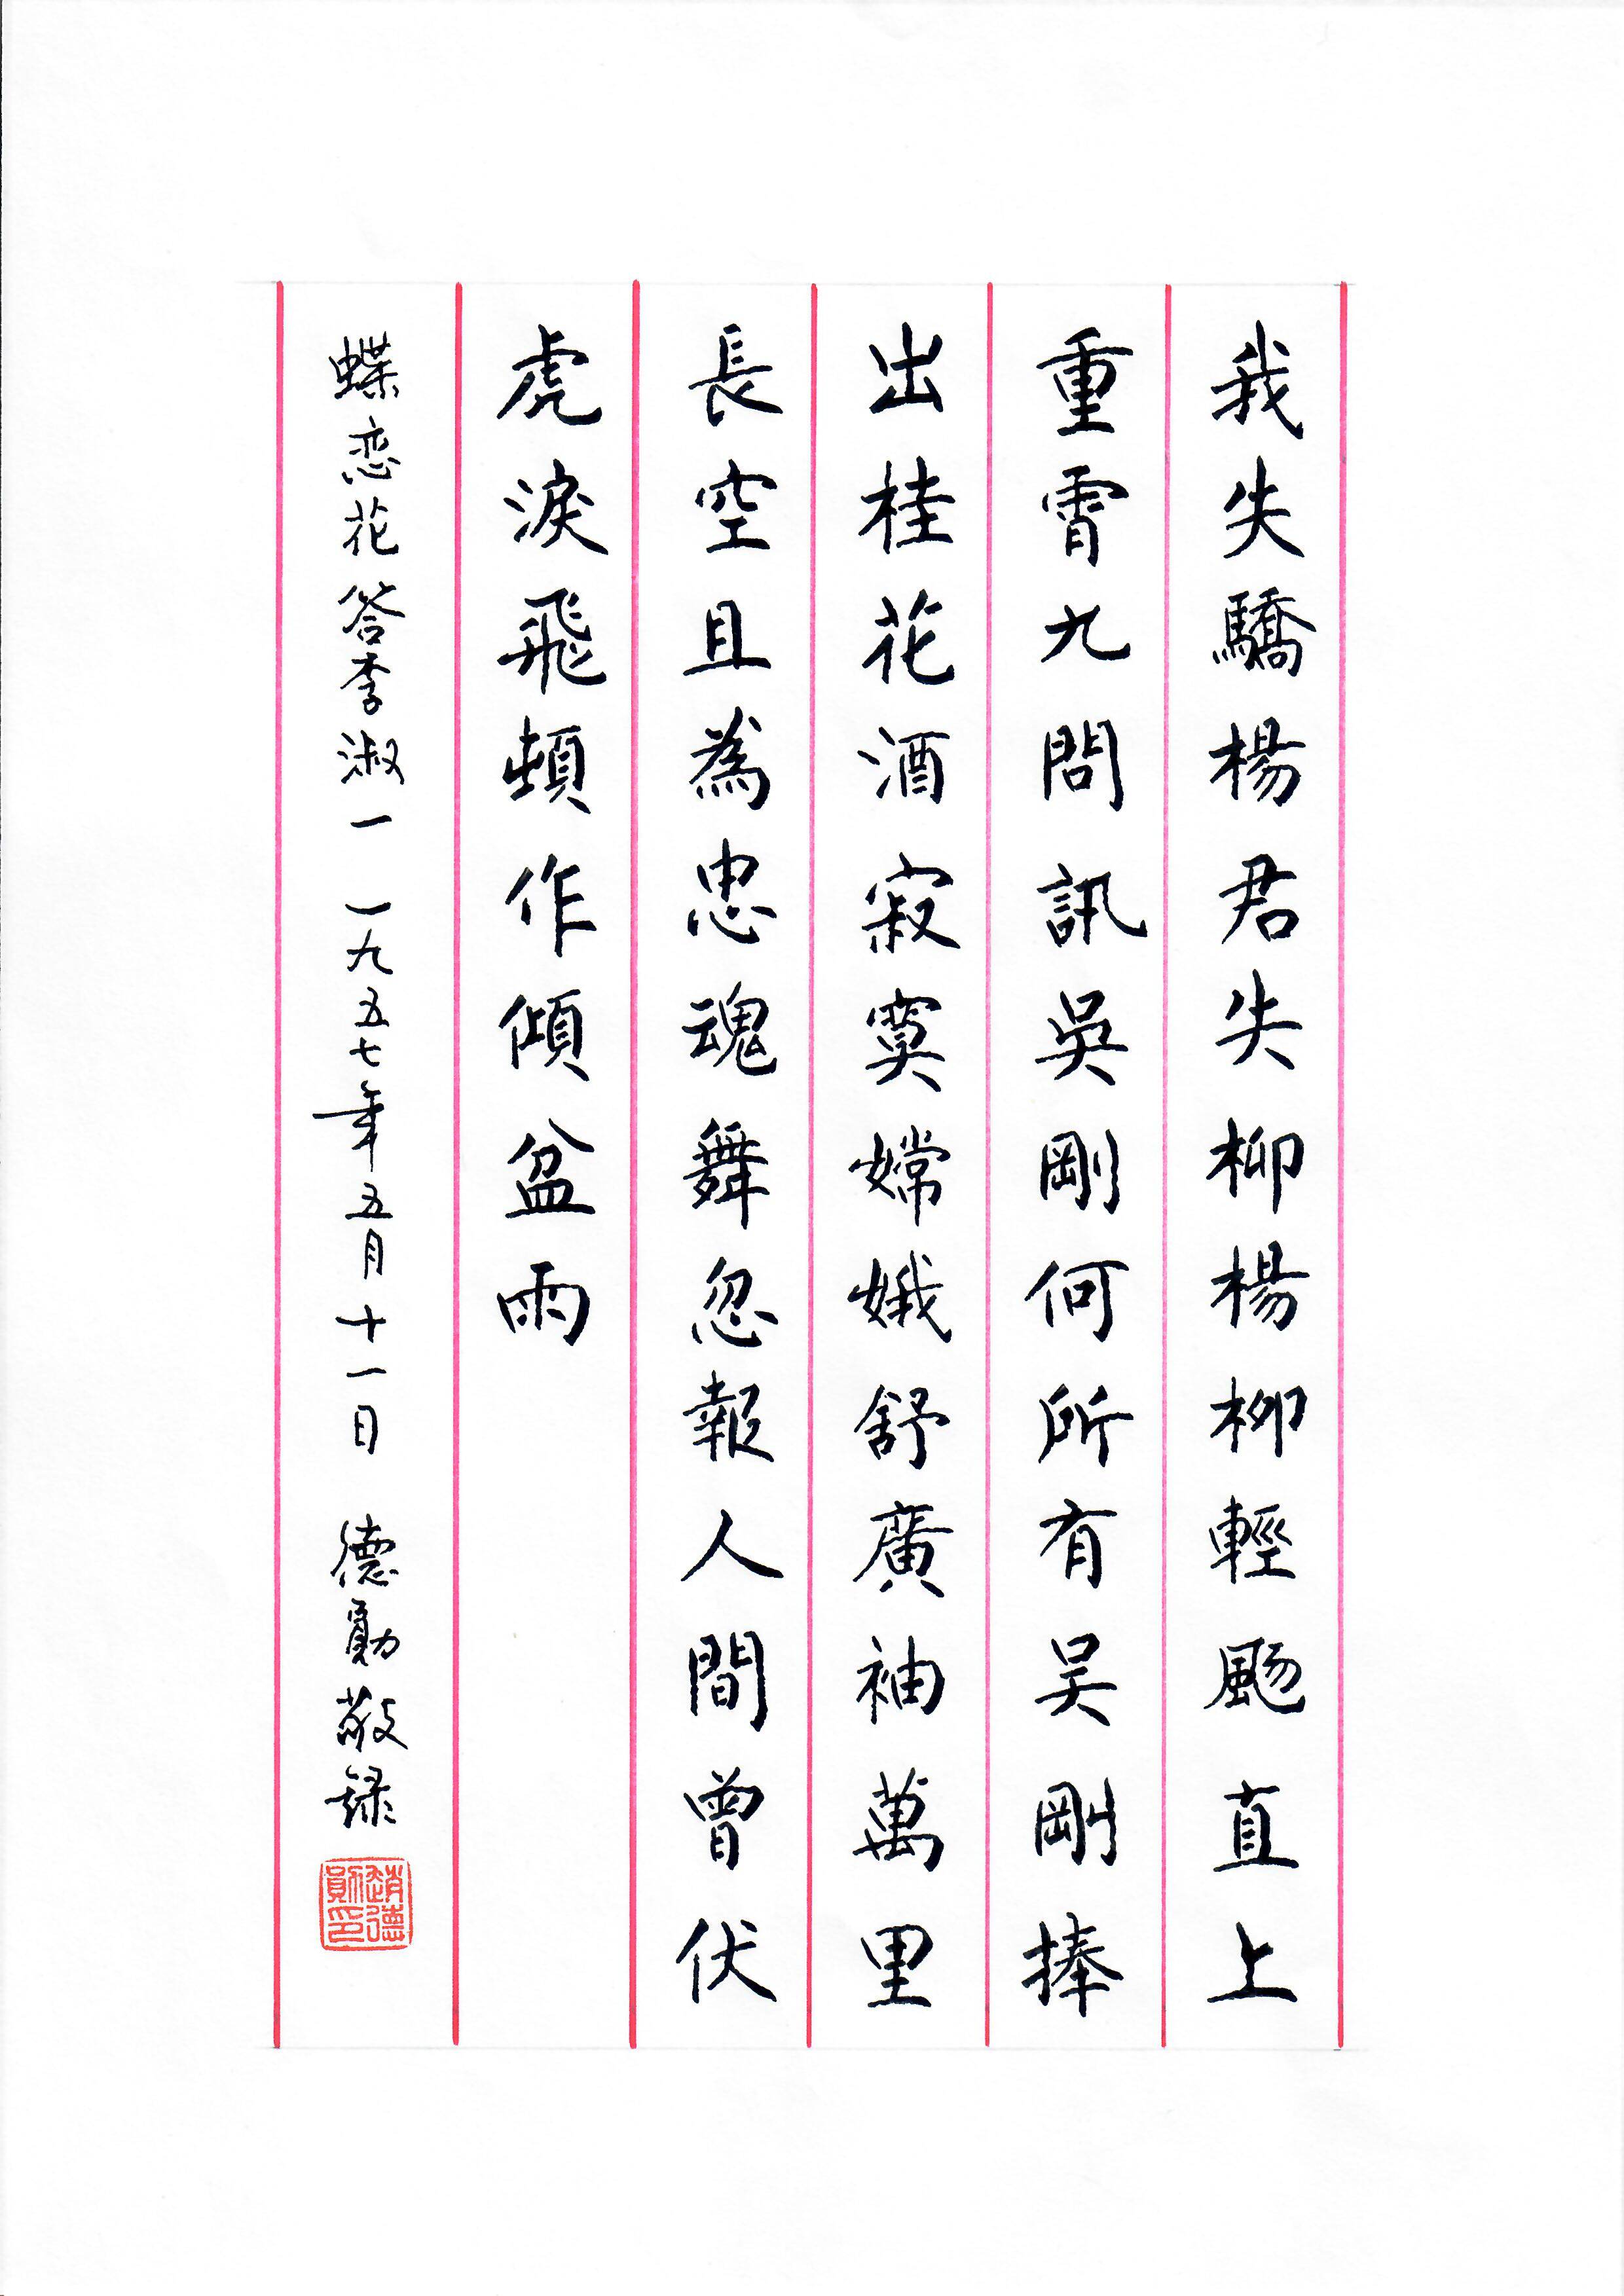 我失驕楊君失柳楊柳輕颺直上
重霄九問訊吳剛何所有吴剛捧
出桂花酒寂寞嫦娥舒廣袖萬里
長空且為忠魂舞忽報人間曾伏
虎淚飛頓作傾盆雨
蝶恋花 答李淑一 一九五七年五月十一日 德勛敬録
趙德勛印